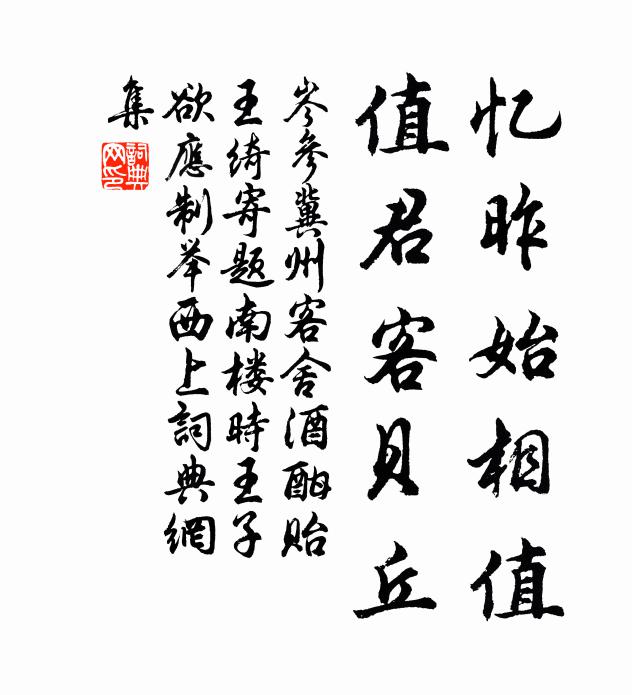 忆昨始相值
值君客贝丘
岑参冀州客舍酒酣贻
王绮寄题南楼時王子
欲應制举西上詞典網
集
詞典
网印